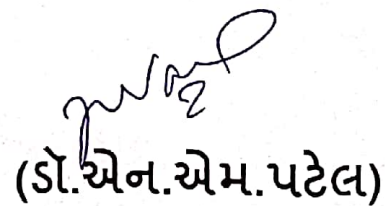 (ડૉ.એન.એમ.પટેલ)